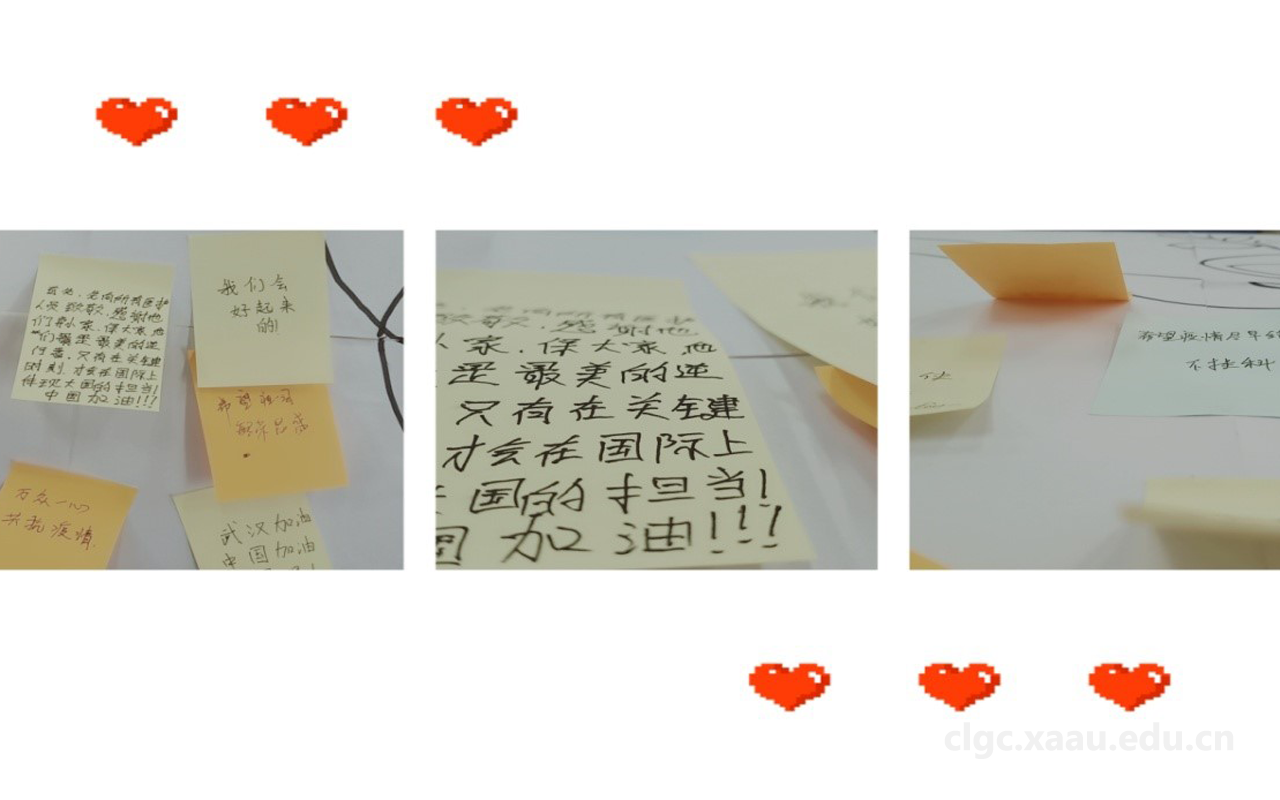 首先,先向所有医护
人员致敬,感谢他
们了舍小家,保大家,他
们是最美的逆
行者,只有在关键
时刻,才会在国际上
体现大国的担当!
中国加油!!!
我们会
好起来
的!
希望祖国
万众一心
共抗疫情.
武汉加油
中国加油
致敬,感谢他
家,保大家,他
是最美的逆
只有在关键
才会在国际上
国的担当!
国加油!!!
希望疫情尽早结
不挂科
clgc.xaau.edu.cn